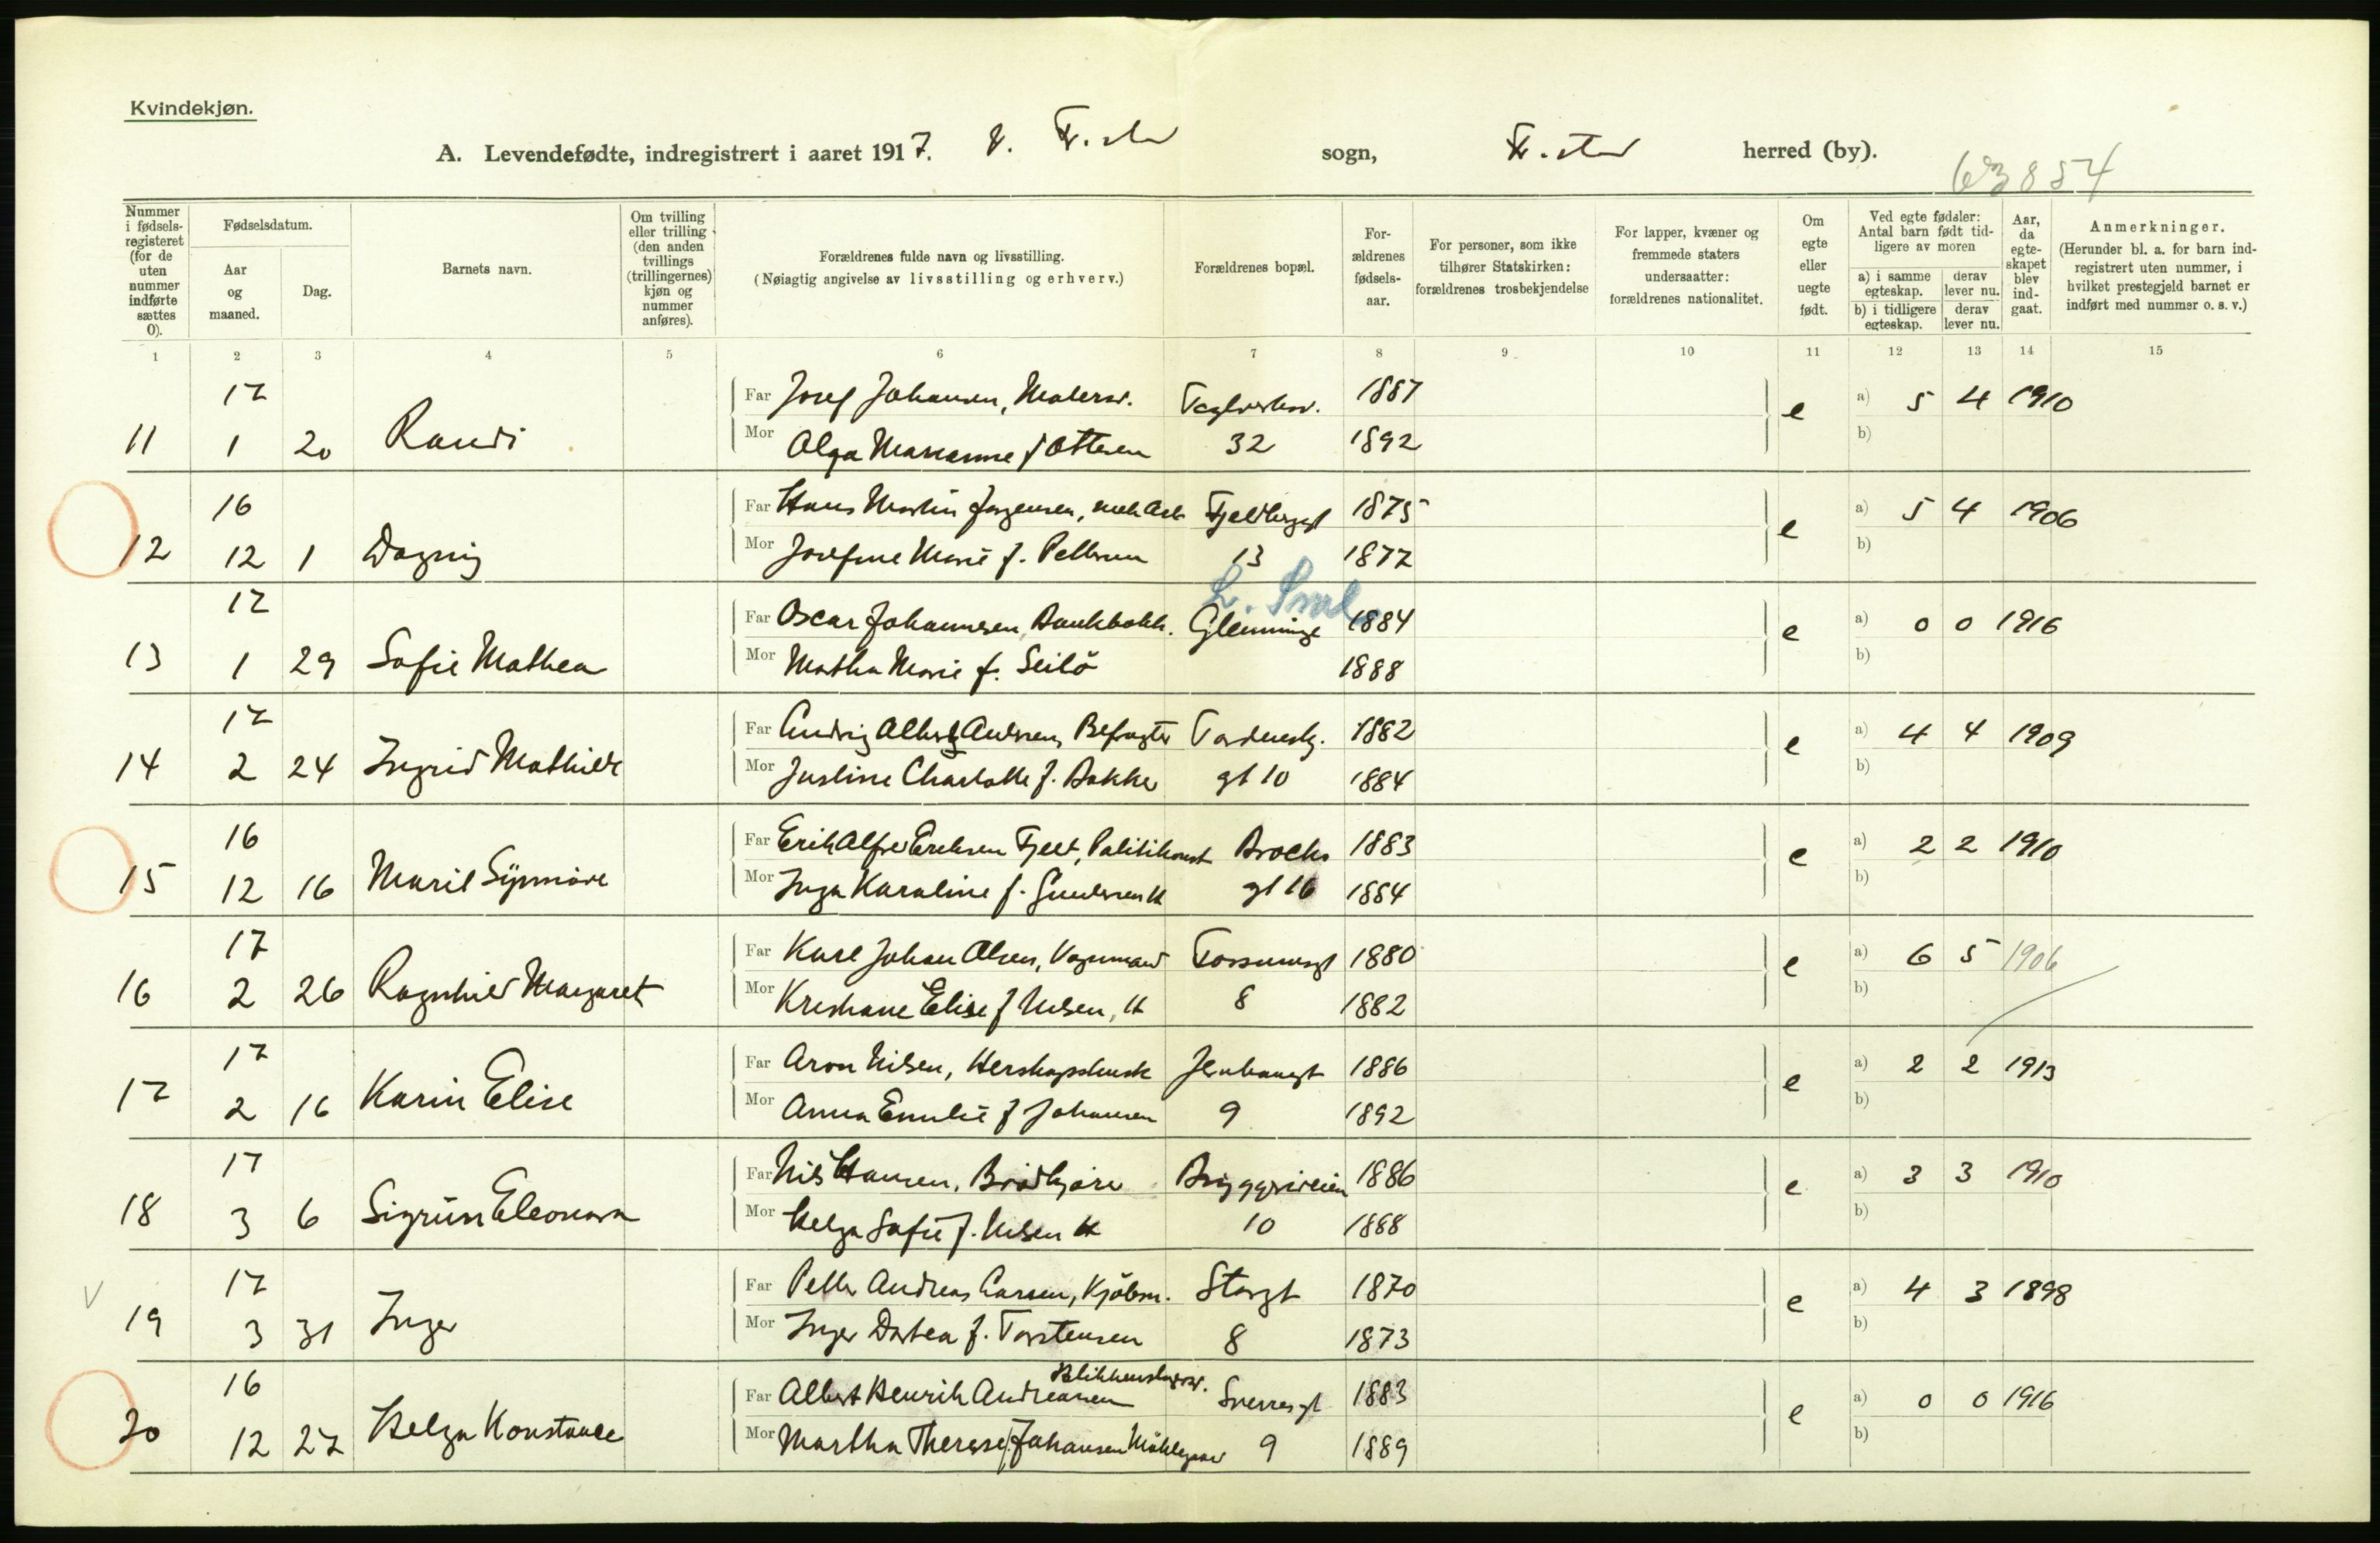 Kvindekjøn.
A. Levendefødte, indregistrert i aaret 1917. V. Fr.stad sogn, Fr.stad herred (by).
63854
Nummer i fødsels-registeret (for de uten nummer indførte sættes 0).
Fødselsdatum.
Aar og maaned.
Dag.
Barnets navn.
Om tvilling eller trilling (den anden tvillings (trillingernes) kjøn og nummer anføres).
Forældrenes fulde navn og livsstilling.
(Nøiagtig angivelse av livsstilling og erhverv.)
Forældrenes bopæl.
For-ældrenes fødsels-aar.
For personer, som ikke tilhører Statskirken: forældrenes trosbekjendelse
For lapper, kvæner og fremmede staters undersaatter: forældrenes nationalitet.
Om egte eller uegte født.
Ved egte fødsler: Antal barn født tid-ligere av moren
a) i samme egteskap.
derav lever nu.
b) i tidligere egteskap.
derav lever nu.
Aar, da egte-skapet blev ind-gaat.
Anmerkninger.
(Herunder bl. a. for barn ind-registrert uten nummer, i hvilket prestegjeld barnet er indført med nummer o. s. v.)
1 2 3 4 5 6 7 8 9 10 11 12 13 14 15
17 Far Josef Johansen, Malersv. 1887 e a) 5 4 1910
11 1 20 Randi Mor Olga Marianne f Ottesen 32 1892 b)
16 Far Hans Martin Jørgensen, Fjeldberggt 1875 e a) 5 4 1906
12 12 1 Dagny Mor Josefine Marie f. Pettersen 13 1877 b)
17 Far Oscar Johannesen, Bankbokh. Glemminge 1884 e a) 0 0 1916
13 1 29 Sofie Mathea Mor Martha Marie f. Seilö 1888 b)
17 Far Ludvig Albert Andersen, Befragter Tordenskj. 1882 e a) 4 4 1909
14 2 24 Ingrid Mathilde Mor Justine Charlotte f. Bakke gt 10 1884 b)
16 Far Erik Alfred Eriksen Fjeld, Politikonst Brochs 1883 e a) 2 2 1910
15 12 16 Maril Synnöve Mor Inga Karoline f. Gundersen H gt 16 1884 b)
17 Far Karl Johan Olsen, Vognmand Farsumsgt 1880 e a) 6 5 1906
16 2 26 Ragnhild Margaret Mor Kristiane Elise f Nilsen, H 8 1882 b)
17 Far Aron Nilsen, Herskapskusk Jernbanegt 1886 e a) 2 2 1913
17 2 16 Karin Elise Mor Anna Emilie f Johansen 9 1892 b)
17 Far Nils Hansen, Brödkjörer Bryggeriveien 1886 e a) 3 3 1910
18 3 6 Sigrun Eleonora Mor Helga Sofie f. Nilsen H 10 1888 b)
17 Far Petter Andreas Larsen, Kjöbm. Storgt 1870 e a) 4 3 1898
19 3 31 Inger Mor Inger Dortea f. Torstensen 8 1873 b)
Blikkenslagersv.
16 Far Albert Henrik Andreassen Sverresgt 1883 e a) 0 0 1916
20 12 27 Helga Konstance Mor Martha Therese f. Johansen 9 1889 b)